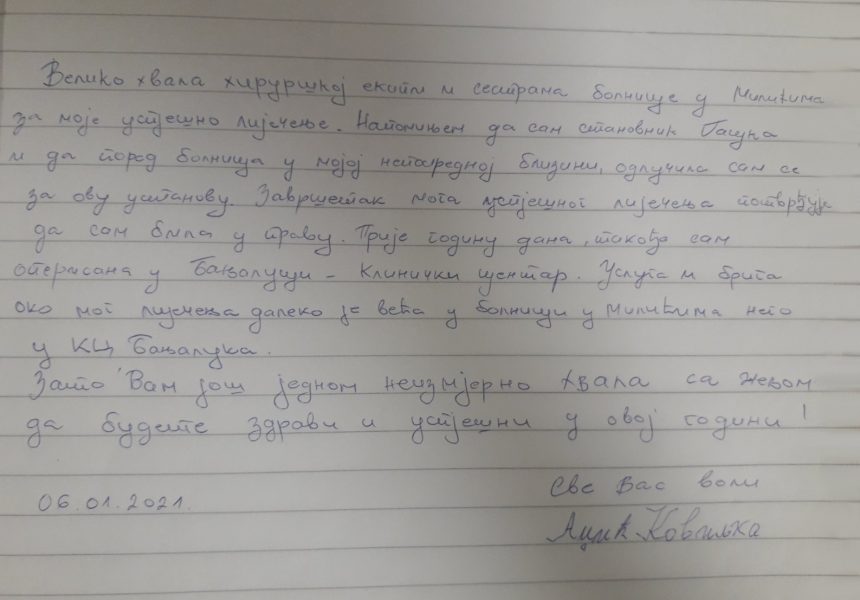 Велико хвала хируршкој екипи и сестрама болнице у Милићима
за моје успјешно лијечење. Напомињем да сам становник Пошња
и да поред болница у мојој непосредној близини, одлучила сам се
за ову установу. Завршетак мога успјешног лијечења потврђује
да сам била у праву. Прије годину дана, такође сам
оперисана у Бањалуци - Клинички центар. Услуга и брига
око мог лијечења далеко је већа у болници у Милићима него
у КЦ Бањалука.
Зато Вам још једном неизмјерно хвала са жељом
да будете здрави и успјешни у овој години!
06.01.2021.
Све Вас воли
Ацић Ковиљка